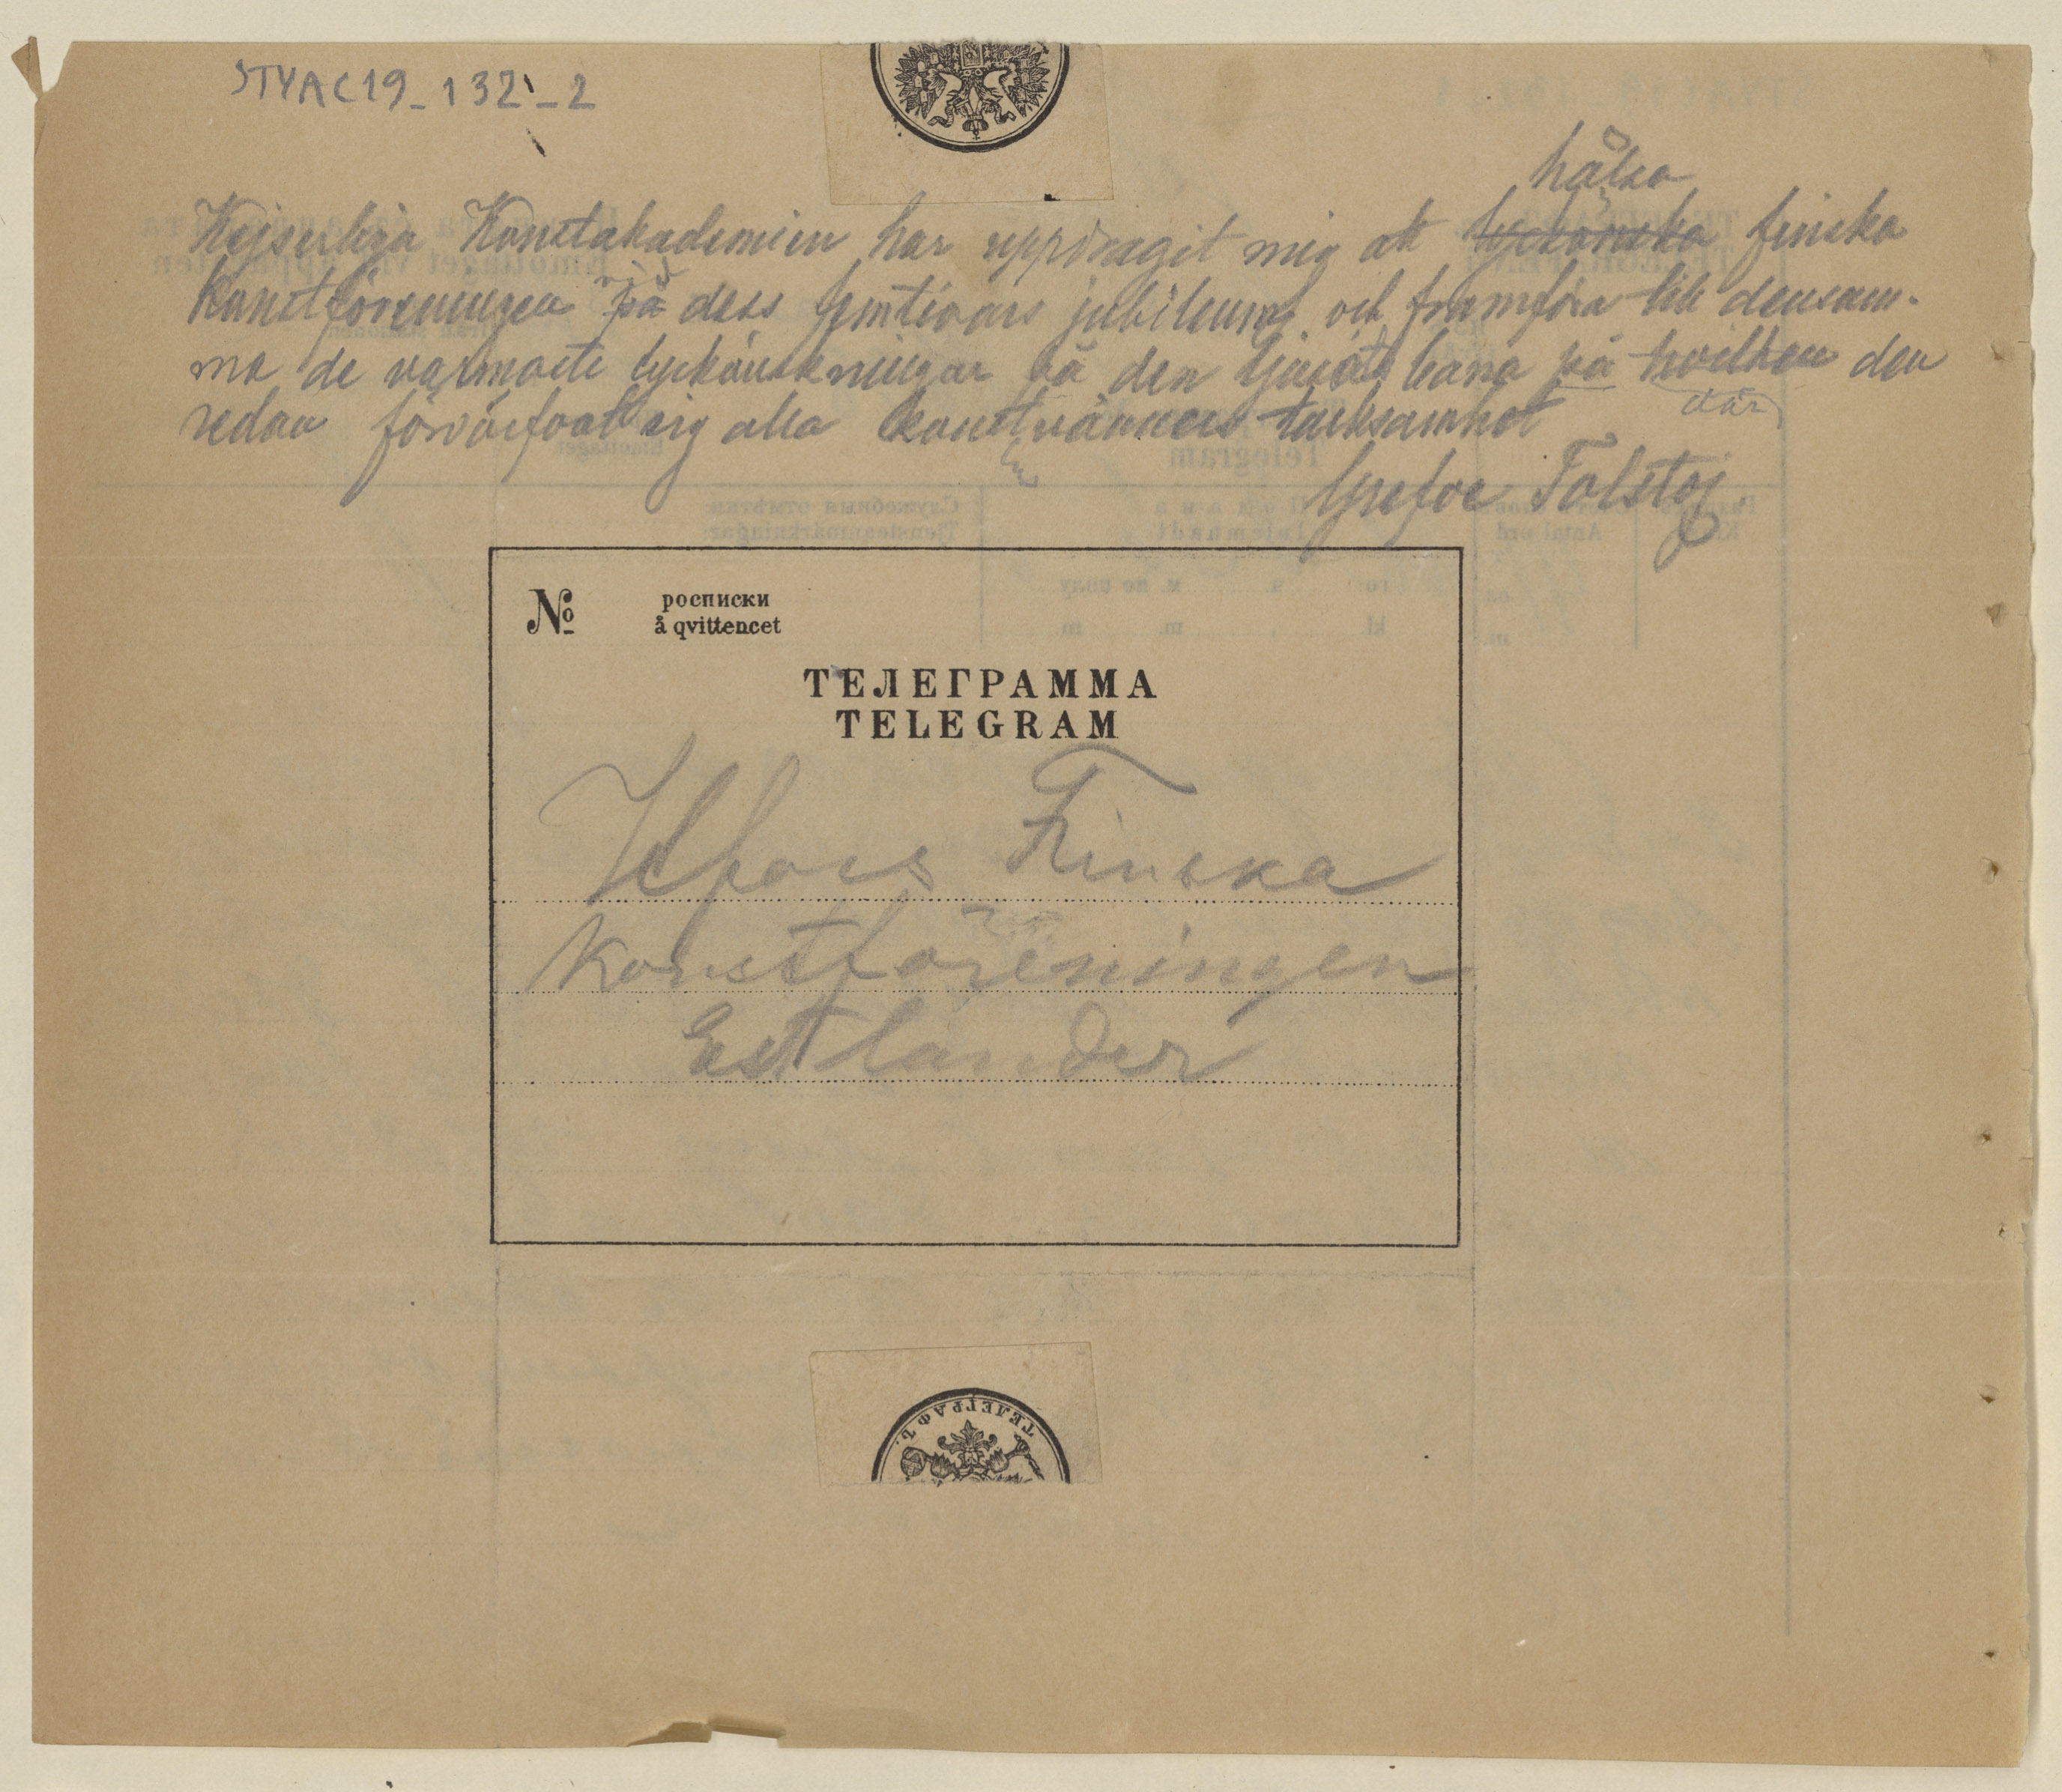 STYAC19_132_2
hälsa
Kejserliga Konstakademien har uppdragit mig att lyckönska finska
Konstföreningen på vid dess femtioårs jubileum och framföra till densam-
ma de varmaste lyckönskningar på den bana på hvilken den
där
redan förvärfvat sig alla konstvänners tacksamhet
Grefve Tolstoj.
№ росписки
å qvittencet
ТЕЛЕГРАММА
TELEGRAM
Hfors Finska
Konstföreningen
Estlander
ТЕЛЕГРАФЪ.